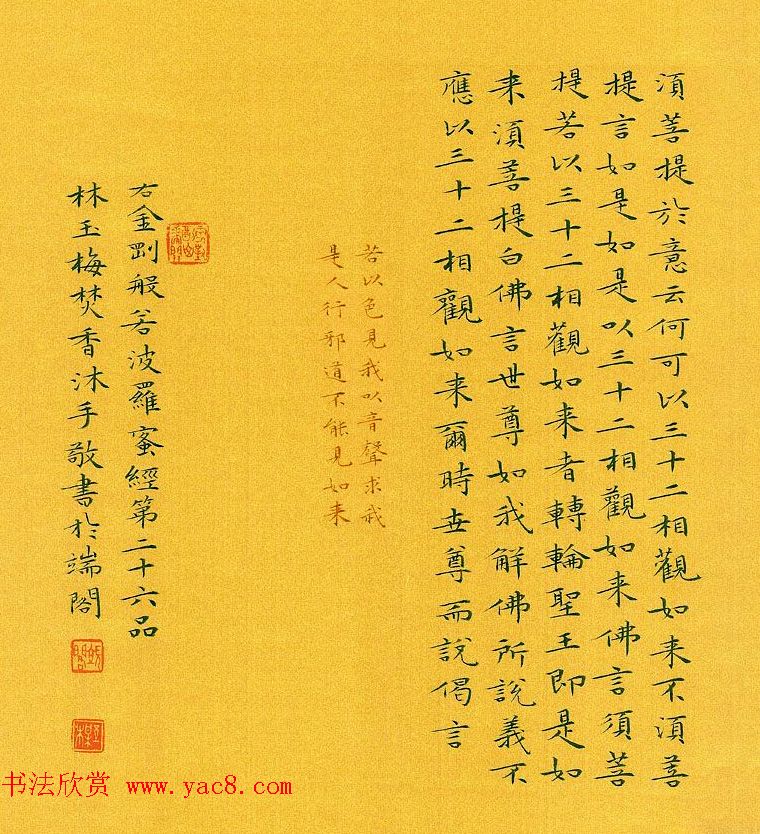 須菩提於意云何可以三十二相觀如来不須菩
提言如是如是以三十二相觀如来佛言須菩
提若以三十二相觀如来者轉輪聖王即是如
来須菩提白佛言世尊如我解佛所說義不
應以三十二相觀如来爾時世尊而說偈言
若以色見我以音聲求我
是人行邪道不能見如来
右金剛般若波羅蜜經第二十六品
林玉梅焚香沐手敬書於端閣
书法欣赏 www.yac8.com